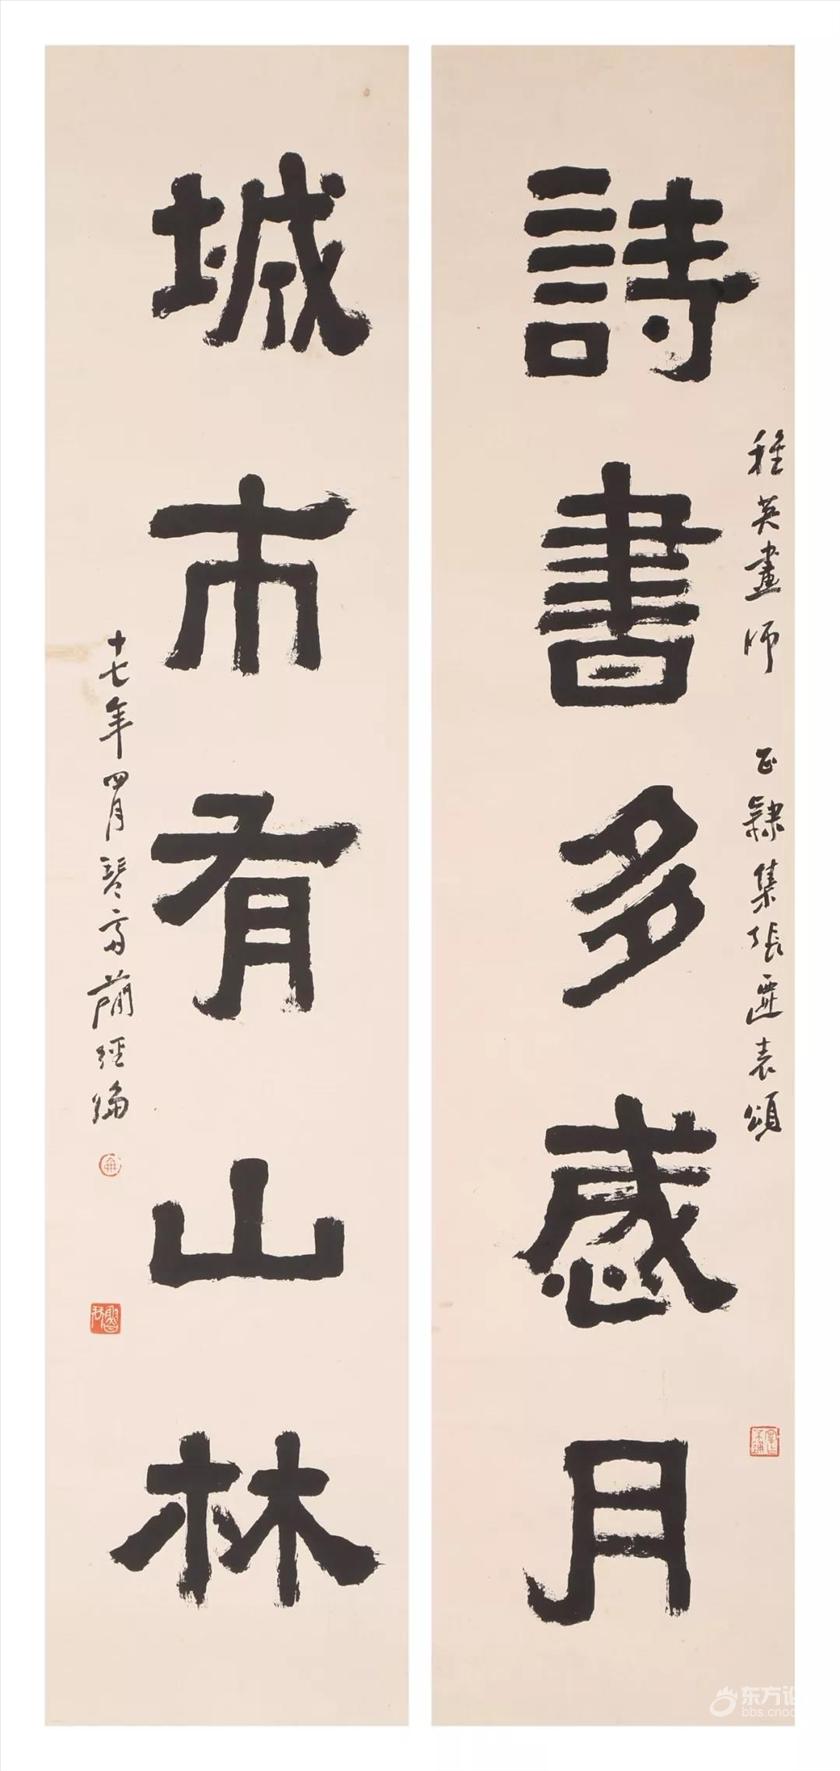 詩書多感月
稚英畫師 正隸集張遷表頌
城市有山林
十七年四月琴齋簡經綸
东方设
bbs.cnoc